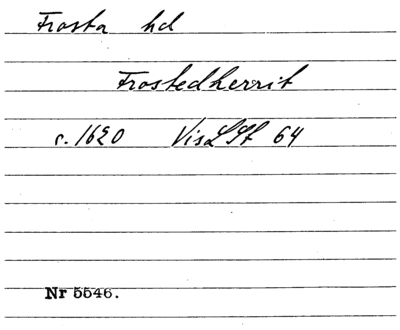 Frosta hd
Frostedherrit
c. 1620 VisLSt 64
Nr 5546.